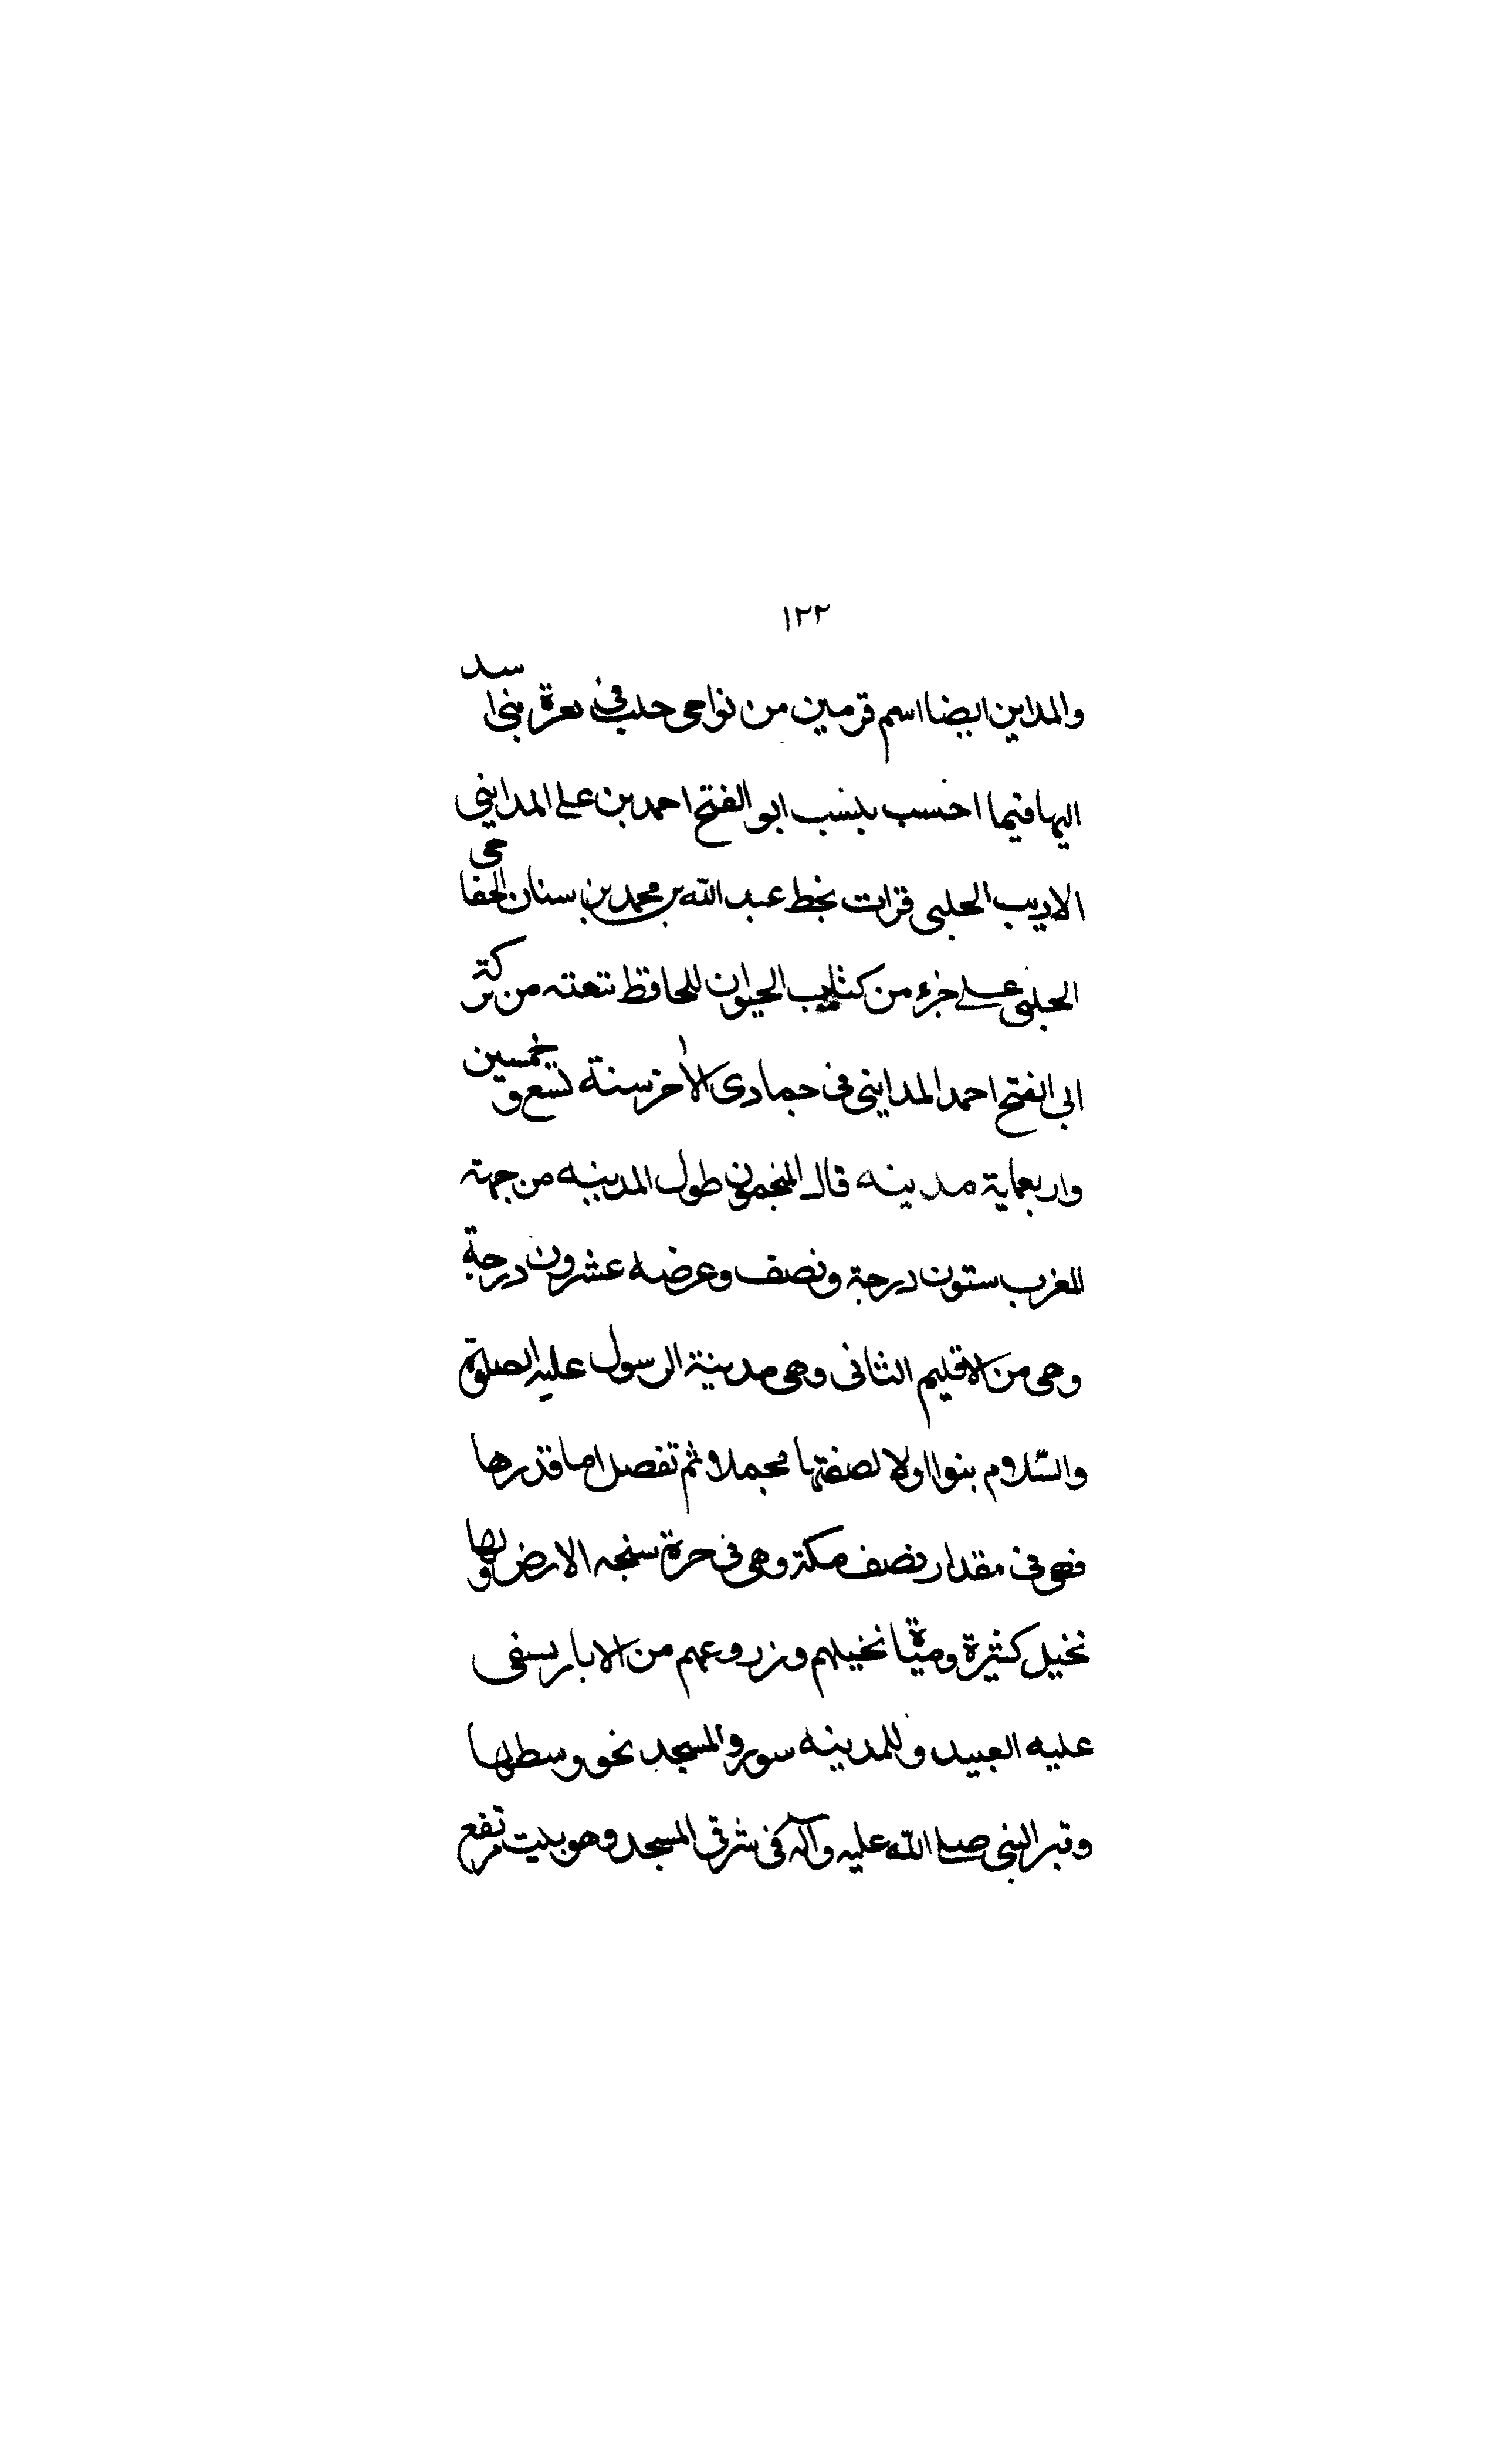 ١٢٢
والمداين ايضا اسم قرمين من نواحى حلب فى نعرة بنى اسد
اليها فيما احسب ينسب ابو الفتح احمد بن على المداينى
الاديب الحلبى قرات بخط عبد الله بن محمد بن سنان الخفاجى
الحلبى على جزء من كتاب الحيوان للحافظ نتعته من كتر
ابى الفتح احمد المداينى فى جمادى الاخر سنة تسع و خمسين
واربعماية مدينه قال المنجمون طول المدينه من جهة
المغرب ستون درجة ونصف وعرضه عشرون درجة
وهى من الاقليم الثانى وهى مدينة الرسول عليه الصلوة
والسّلام بنوا اولا لصفتها مجملا ثم تفصل اما قدرها
فهى فى مقدار نصف مكة وهى فى حرة سنجه الارض ولها
نخيل كثيرة ومياة نخيلهم وزروعهم من الابار يسقى
عليه العبيد وللمدينه سور والمسجد نحو وسطها
وقبر النبى صلى الله عليه وآله فى شرقى المسجد وهو بيت مرتفع